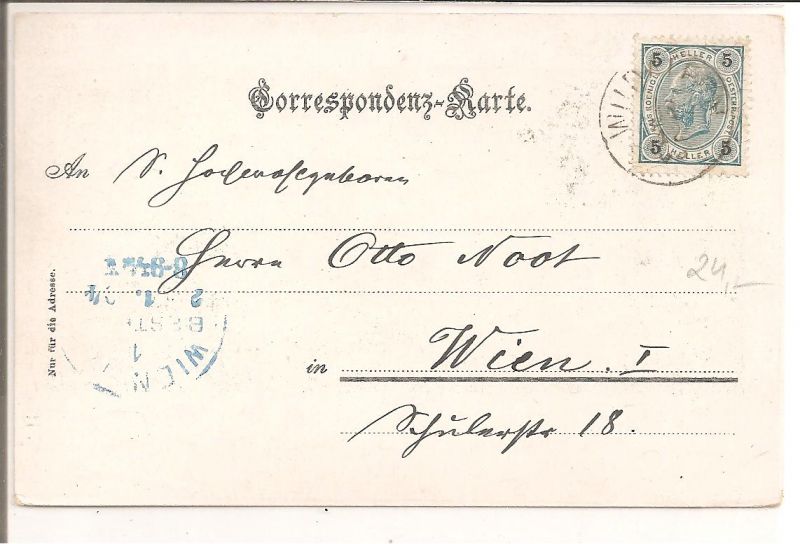 Correspondenz-Karte.
5 HELLER 5
KAIS. KOENIGL. OESTERR. POST
5 HELLER 5
WIL
An S. Hochwohlgeboren
Herrn Otto Noot
24,-
8-9
2 1. 04
BEST
1
WIEN
Nur für die Adresse.
in Wien. I
Schulerstr. 18.